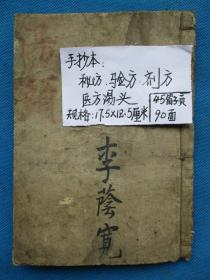 手抄本:
秘方.验方.剂方
医方汤头
规格:17.5x12.5厘米
45筒子页
90面
李蔭寬